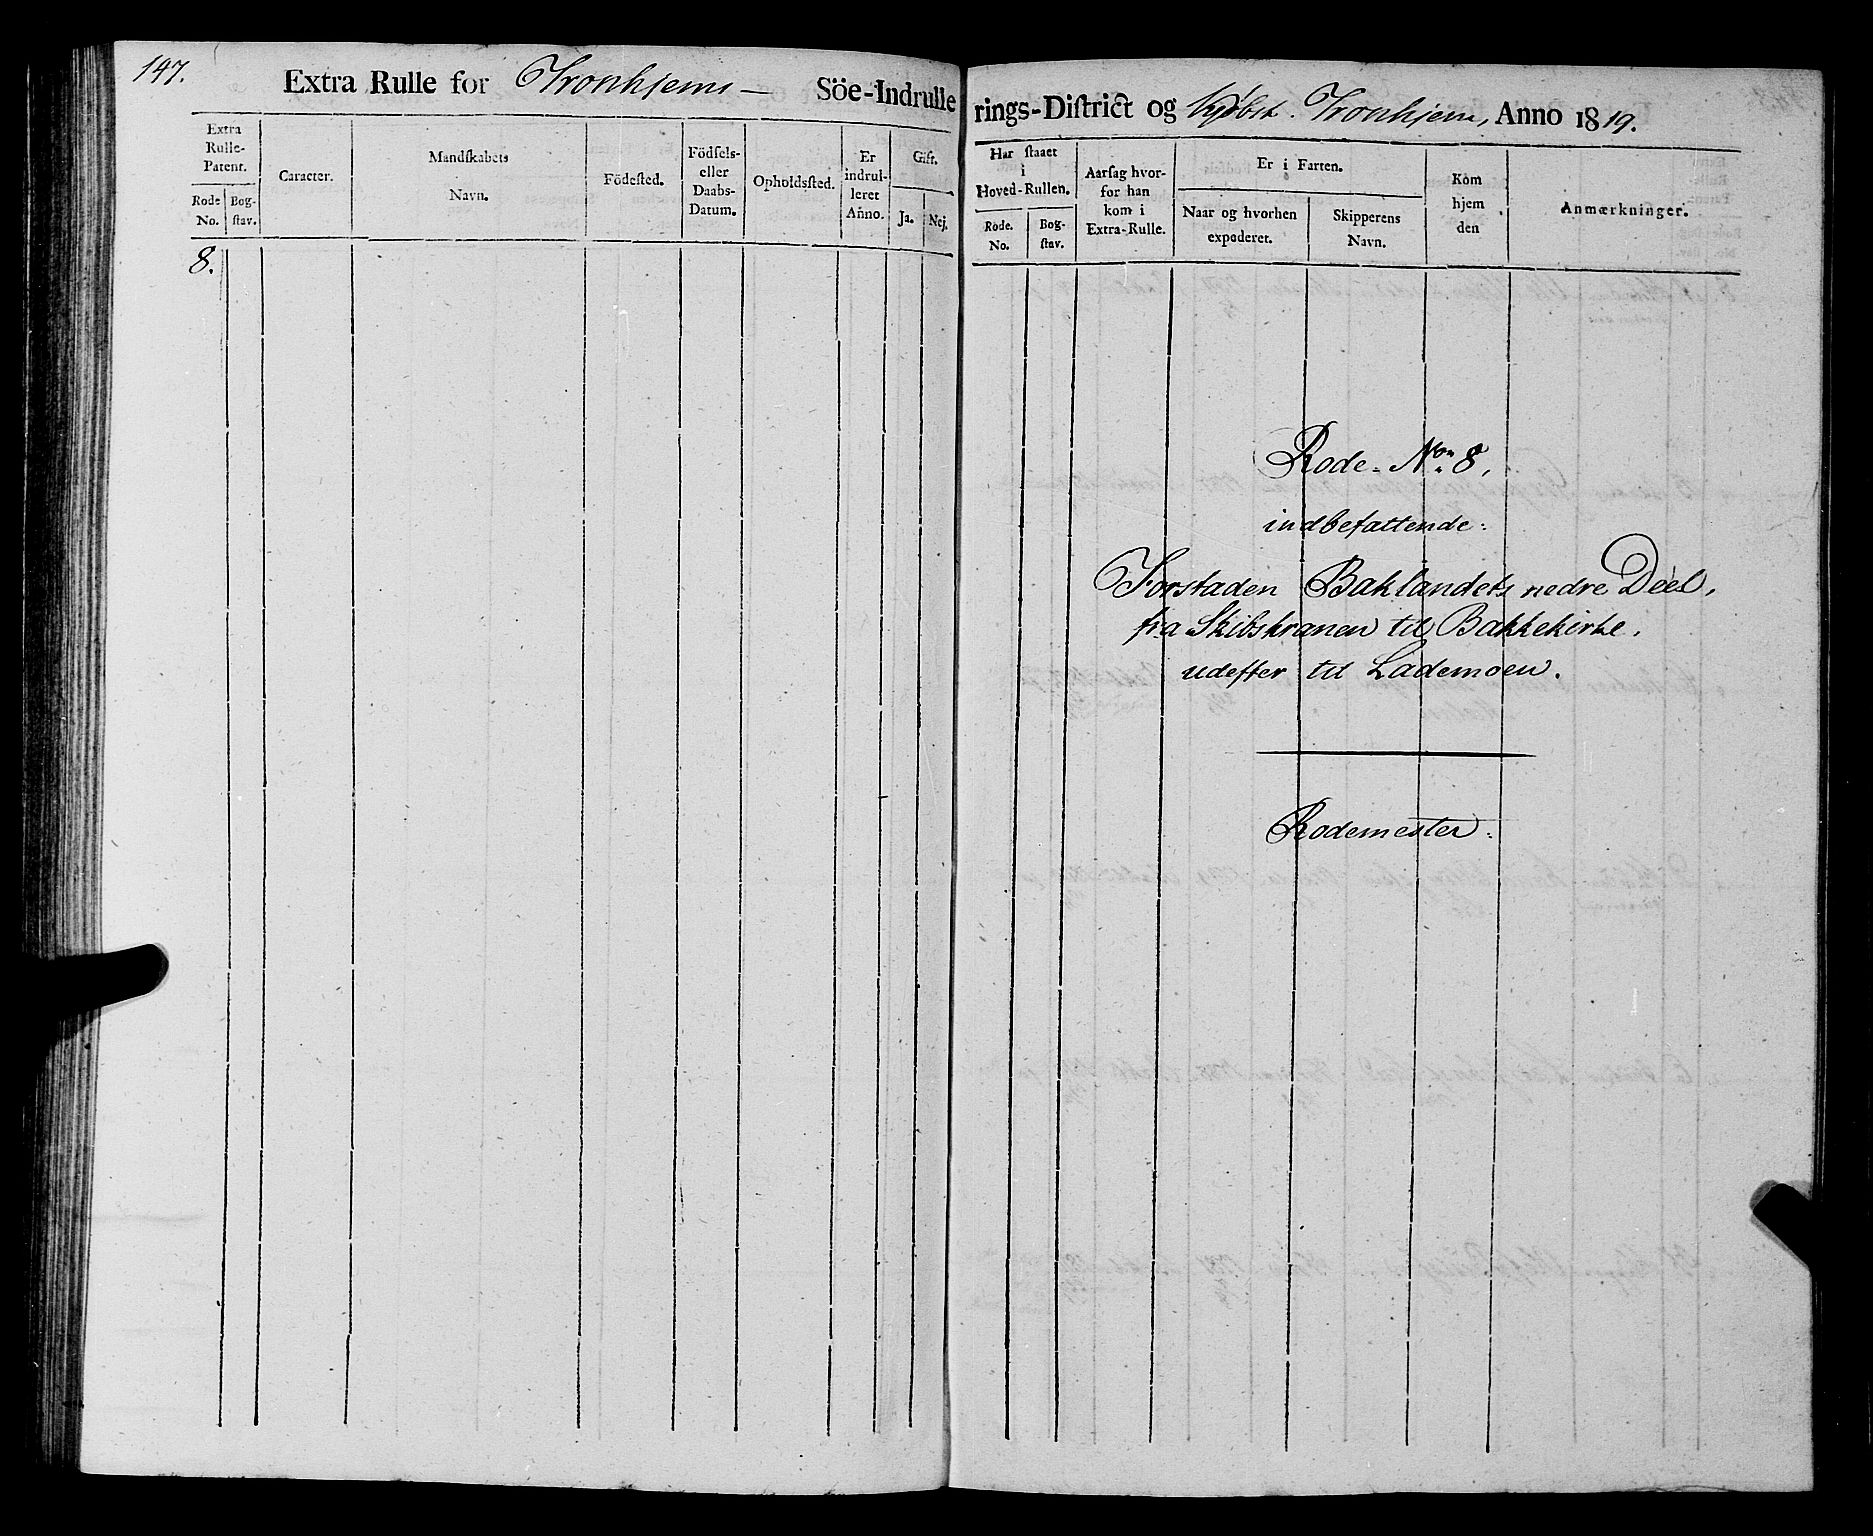 147.
Extra Rulle for Tronhjems — Söe-Indrullerings-District og Kjøbst. Tronhjem, Anno 1819.
Extra Rulle-Patent.
Rode No.
Bog-stav.
Caracter.
Mandskabets Navn.
Födested.
Födsels- eller Daabs-Datum.
Opholdssted.
Er indrul-leret Anno.
Gift.
Ja.
Nej.
Har staaet i Hoved-Rullen.
Rode. No.
Bog-stav.
Aarsag hvor-for han kom i Extra-Rulle.
Er i Farten.
Naar og hvorhen expederet.
Skipperens Navn.
Kom hjem den
Anmærkninger.
8.
Rode No. 8,
indbefattende:
Forstaden Baklandets nedre Deel,
fra Skibskranen til Bakkekirke,
udefter til Lademoen.
Rodemester: